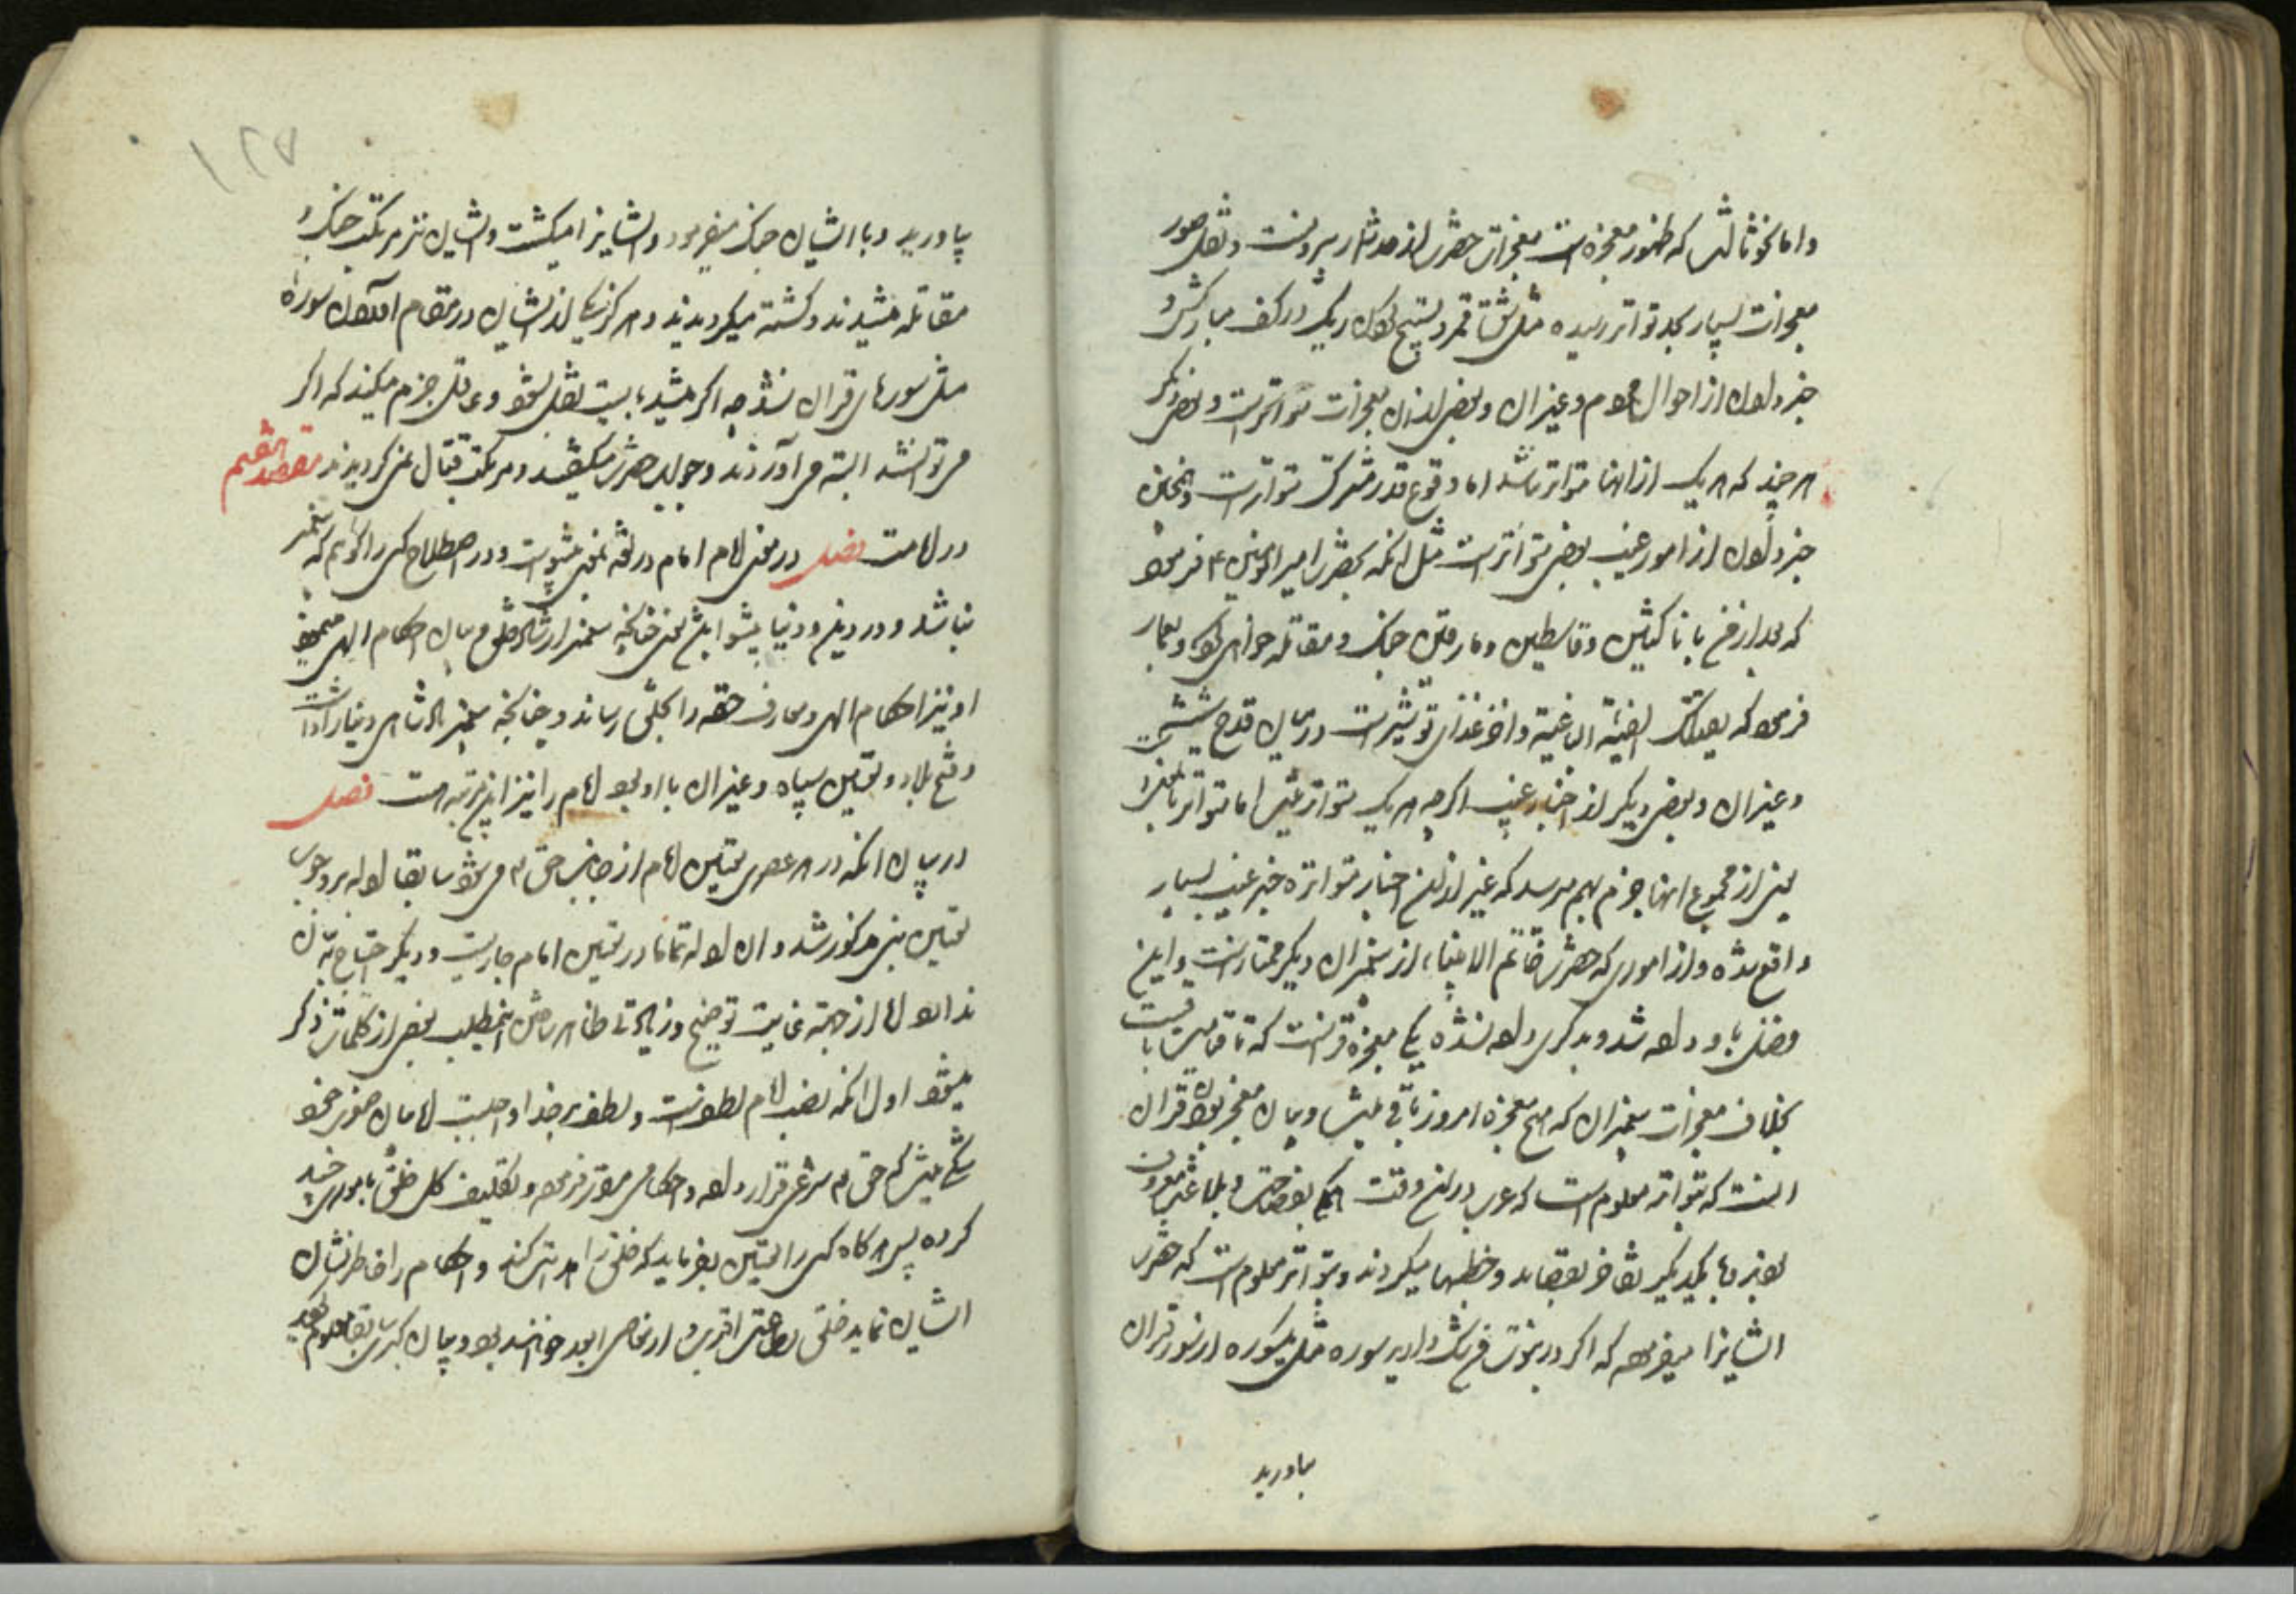 واما نحو ثالث که ظهور معجزه است معجزات حضرت از حد شمار بیرونست و نقل صور
معجزات بسیار بحد تواتر رسیده مثل شق قمر و تسبیح کردن ریک در کف مبارکش و
خبر دادن از احوال مردم وغیر ان وبعضی از ان معجزات متواترست وبعضی دیکر
هر چند که هر یک از انها متواتر نباشد اما وقوع قدر مشترک متواترست وهمچنین
خبر دادن از امور غیب بعضی متواترست مثل انکه بحضرت امیر المؤمنین ع فرمود
که بعد از من با ناکثین وقاسطین ومارقین جنک ومقاتله خواهی کرد وبعمار
فرمود که یقتلک الفئة الباغیة واخر غذای تو شیرست در میان قدح
وغیر ان وبعضی دیکر از اخبار غیب اکرچه هر یک متواتر نیست اما متواتر
یعنی از مجموع انها جزم بهم میرسد که غیر از این اخبار متواتره خبر غیب بسیار
واقع شده واز اموری که حضرت خاتم الانبیاء از پیغمبران دیکر ممتازست واین
فضل باو داده شد وبدیکری داده نشده یکی معجزه قرانست که تا قیامت باقیست
بخلاف معجزات پیغمبران که هیچ معجزه امروز باقی نیست وبیان معجز بودن قران
انست که بتواتر معلوم است که عرب در ان وقت بفصاحت وبلاغت معروف
بودند وبا یکدیکر تفاخر بقصاید وخطبها میکردند وبتواتر معلوم است که حضرت
ایشانرا میفرمود که اکر در نبوت من شک دارید سوره مثل یکسوره از سور قران
بیاورید
۱۲۷
بیاورید وبا ایشان جنک میفرمود وایشانرا میکشت وایشان نیز مرتکب جنک و
مقاتله میشدند وکشته میکردیدند وهرکز یکی از ایشان در مقام اوردن سوره
مثل سورهای قران نشد چه اکر میشد بایست نقل بشود وعاقل جزم میکند که اکر
می توانستند البته می اوردند وجواب حضرت میکفتند ومرتکب قتال نمی کردیدند مقصد هفتم
در امامت فصل در معنی امام امام در لغت بمعنی پیشواست ودر اصطلاح کسی را کویند که پیغمبر
نباشد ودر دین ودنیا پیشوا باشد یعنی چنانچه پیغمبر ارشاد خلق وبیان احکام الهی مینمود
او نیز احکام الهی ومعارف حقه را بخلق رساند وچنانچه پیغمبر پادشاهی دنیا را داشت
وفتح بلاد وتعیین سپاه وغیر ان با او بود امام را نیز این مرتبه هست فصل
در بیان انکه در هر عصری تعیین امام از جانب حق تع می شود سابقا ادله بر وجوب
تعیین نبی مذکور شد وان ادله تماما در تعیین امام جاریست ودیکر احتیاج به ان
ندارد اما از جهة غایت توضیح وزیادتی ظاهر ساختن اینمطلب بعضی از کلمات ذکر
میشود اول انکه نصب امام لطفست ولطف بر خدا واجبست اما بیان صغری خود
شکی نیست که حق تع شرعی قرار داده واحکامی مقرر فرموده وتکلیف کل خلق بامور چند
کرده پس هرکاه کسی را تعیین بفرماید که خلق را هدایت کند واحکام را خاطر نشان
ایشان نماید خلق بطاعت اقرب واز معاصی ابعد خواهند بود وبیان کبری سابقا معلوم کردید